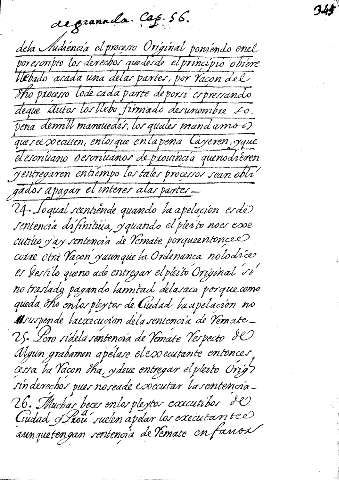 de granada. Cap. 56.
345
dela Audiencia el processo Original poniendo en el
por escripto los derechos que desde el principio obiere
llebado a cada una delas partes, por raçon del
dho processo lo de cada parte de por si espressando
de que autos los llebo firmado de su nombre so
pena de mill marauedis, los quales mandamos
que se executen, en los que en la pena Cayeren, y que
el escriuano o escriuanos de prouincia que no dieren
y entregaren en tiempo los tales processos sean obli
gados a pagar el interes a las partes
24. Lo qual se entiende quando la apelacion es de
sentencia difinitiua, y quando el pleito no es exe
cutiuo y ay sentencia de Remate porque entonces
corre otra Raçon, y aunque la Ordenança no lo dice
es bastilo que no a de entregar el pleito Original si
no traslado pagando la mitad dela saca porque como
queda dho en los pleytos de Ciudad la apelacion no
suspende la execucion de la sentencia de Remate
25. Pero si de la sentencia de Remate Respecto de
algun grabamen apelase el executante entonces
cessa la Racon dha, y deue entregar el pleito Orig
sin derechos pues no se a de executar la sentencia
26. Muchas beces en los pleytos executibos de
Ciudad y Prou suelen apelar los executantes
aunque tengan sentencia de Remate en fauor